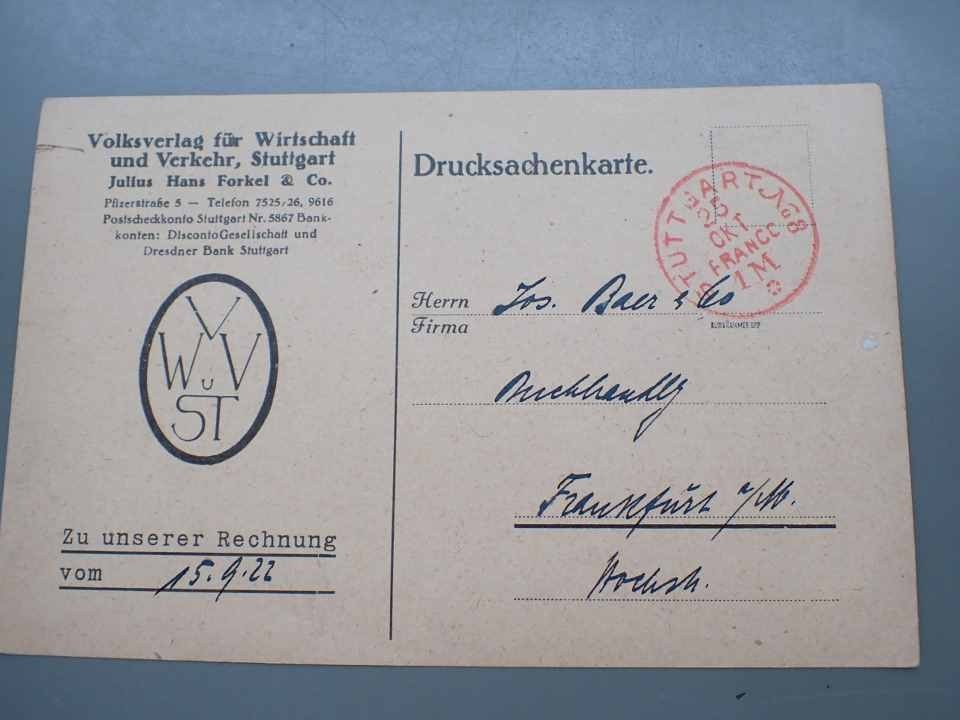 Volksverlag für Wirtschaft
und Verkehr, Stuttgart
Julius Hans Forkel & Co.
Pfizerstraße 5 — Telefon 7525/26, 9616
Postscheckkonto Stuttgart Nr. 5867 Bank-
konten: Disconto Gesellschaft und
Dresdner Bank Stuttgart
V
W u V
ST
Zu unserer Rechnung
vom 15.9.22
Drucksachenkarte.
STUTTGART No 8
25
OKT
FRANCO
1 M
Herrn Jos. Baer & Co
Firma
Buchhandlg
Frankfurt a/M.
Hochstr.